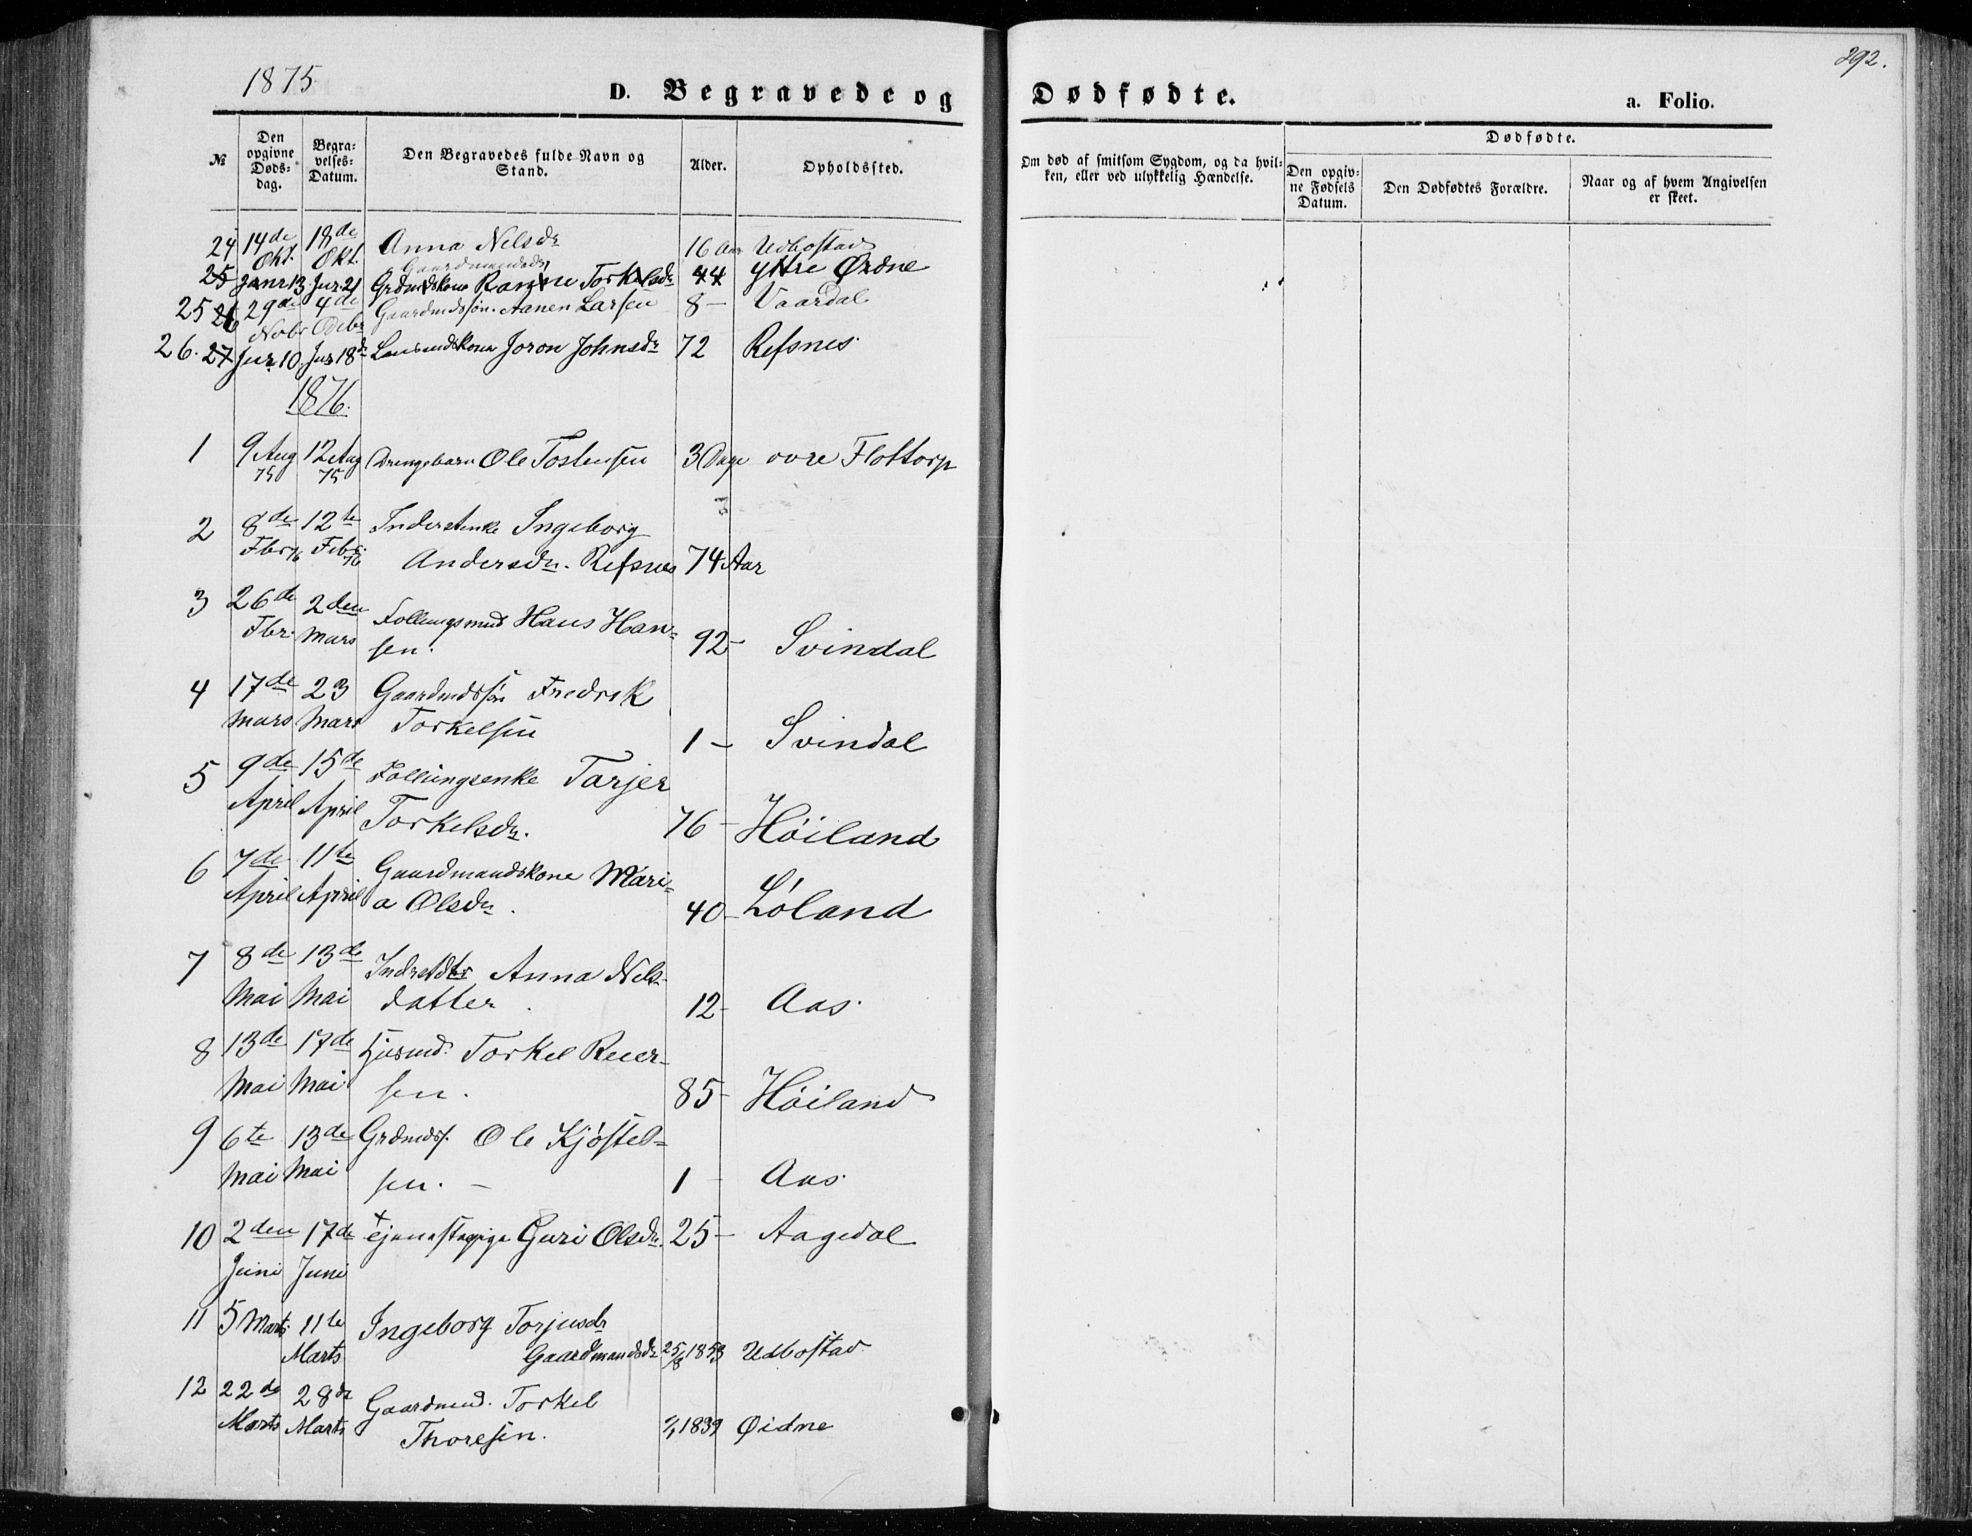 1875
D. Begravede og
Dødfødte.
a. Folio.
292.
№
Den opgivne Døds-dag.
Begra-velses-Datum.
Den Begravedes fulde Navn og Stand.
Alder.
Opholdssted.
Om død af smitsom Sygdom, og da hvil-ken, eller ved ulykkelig Hændelse.
Dødfødte.
Den opgiv-ne Fødsels Datum.
Den Dødfødtes Forældre.
Naar og af hvem Angivelsen er skeet.
24 14de Okt. 18de Okt. Anna Nelsdr 16 Aar Udbostad
Gaardmandsdr
25 13 21 Grdmdskone Torkelsdr 44 Yttre Øidne
25 26 29de Nobr 4de Gaardmdssøn. Aanen Larsen 8 – Vaardal
26. 27 10 18de Joron Johnsdr 72 Refsnes
1876.
1 9 Aug 75 12 Aug 75 Drengebarn Ole Tostensen 3 Dage øvre Flottorp
2 8de Fbr 76 12te Febr. 76 Inderstenke Ingeborg
Andersdr. Refsnes 74 Aar
3 26de Fbr. 2den Mars Follungsmnd Hans Han-
sen. 92 – Svindal
4 17de Mars 23 Mars Gaardmdssøn Fredrik
Torkelsen 1 – Svindal
5 9de April 15de April Follungsenke Tarjer
Torkelsdr. 76 – Høiland
6 7de April 11te April Gaardmandskone Mari-
a Olsdr. 40 – Løland
7 8de Mai 13de Mai Anna Nels-
datter. 12 – Aas.
8 13de Mai 17de Mai Husmd. Torkel Reier-
sen. 85 – Høiland
9 6te Mai 13de Mai Grdmds. Ole Kjøstel-
sen. – 1 – Aas.
10 2den Juni 17de Juni Tjenestepige Guri Olsdr. 25 – Aagedal
11 5 Marts 11te Marts Ingeborg Torjusdr
Gaardmandsdr 25/8 1853 Udbostad
12 22de Marts 28de Marts Gaardmnd. Torkel
Thoresen. 1839 Øidne